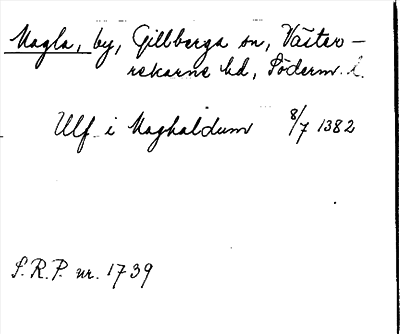 Nagla, by, Gillberga sn, Väster-
rekarne hd, Söderm. l.
Ulf i Naghaldum 8/7 1382
S.R.P. nr. 1739